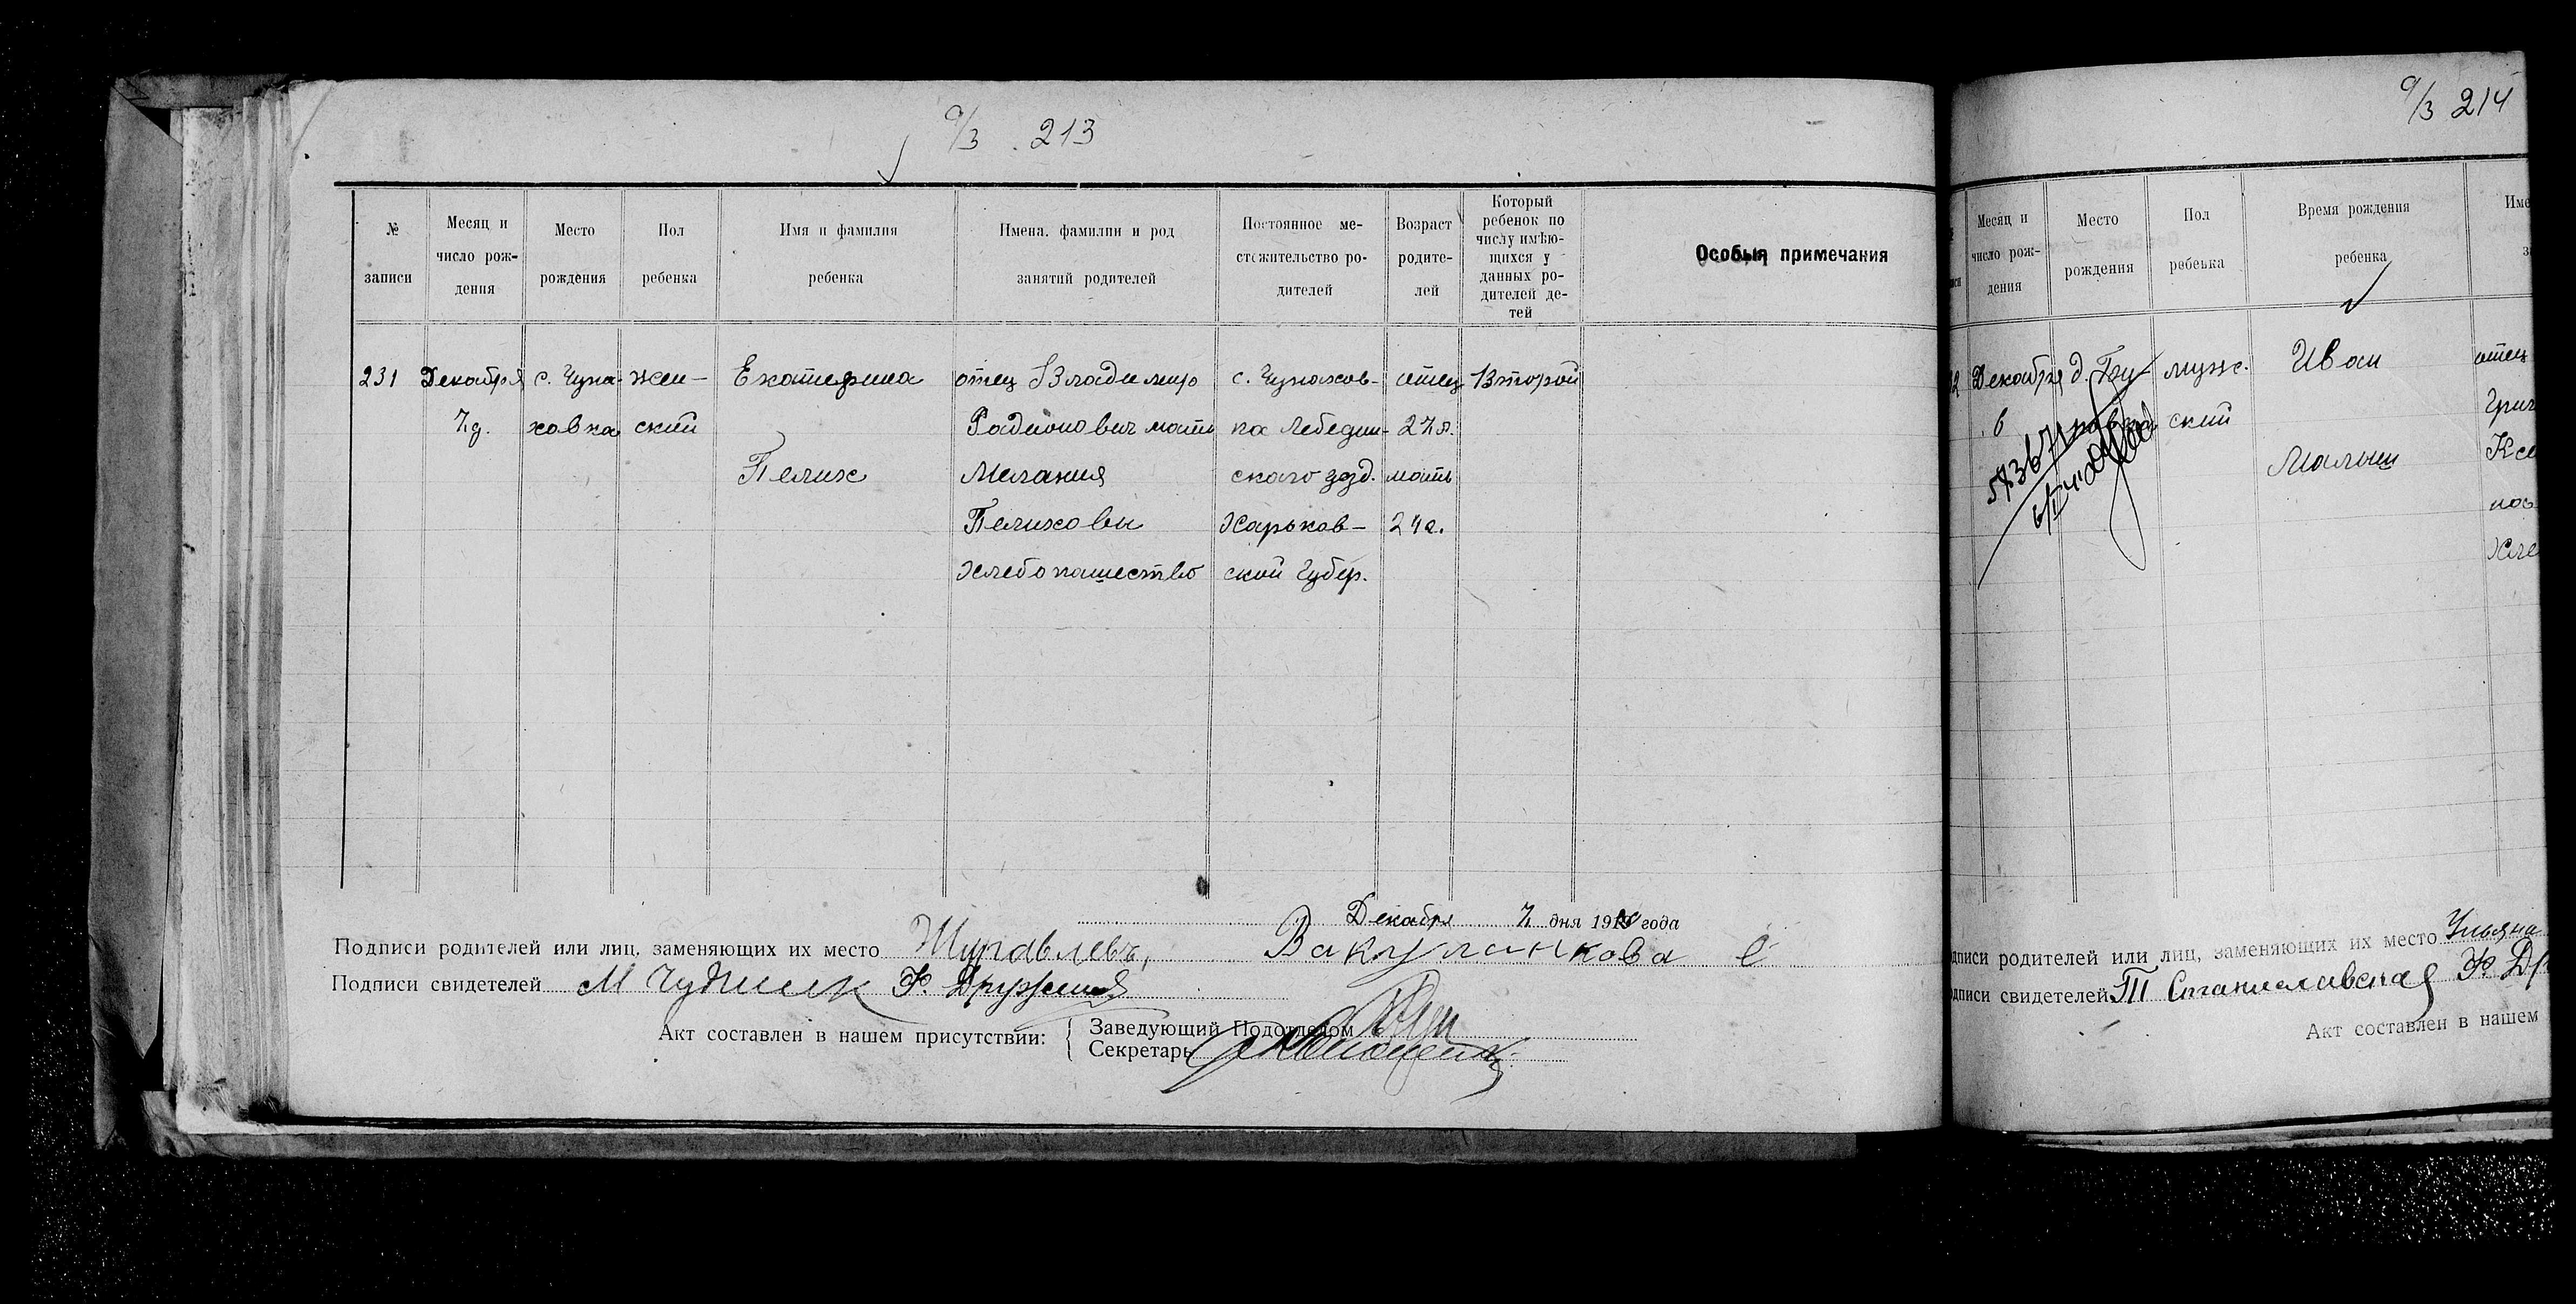 о/з . 213
№ записи
Месяц и число рождения
Место рождения
Пол ребенка
Имя и фамилия ребенка
Имена, фамилии и род занятий родителей
Постоянное местожительство родителей
Возраст родителей
Который ребенок по числу имѣющихся у данных родителей детей
Особыя примечания
231 Декабря с. Чупа- жен- Екатерина отец Владимир с. Чупахов- отец Второй
7 д. ховка ский Радионович мать ка Лебедин- 27 л.
Пелих Мелания ского уезд. мать
Пелиховы Харьков- 24 г.
Хлебопашество ской Губер.
Декабря 7 дня 1920 года
Подписи родителей или лиц, заменяющих их место Журавлевъ, Вакуленкова е
Подписи свидетелей М Чудник Ф. Дружиня
Акт составлен в нашем присутствии: Заведующий Подотделом
Секретарь
о/з 214
Месяц и число рождения
Место рождения
Пол ребенка
Время рождения ребенка
Име
Декабря д. мужс. Иван отец
6 ский Григ
Малыш Ксе
Хле
дписи родителей или лиц, заменяющих их место Ульяна
одписи свидетелей П Станиславская Ф. Др
Акт составлен в нашем